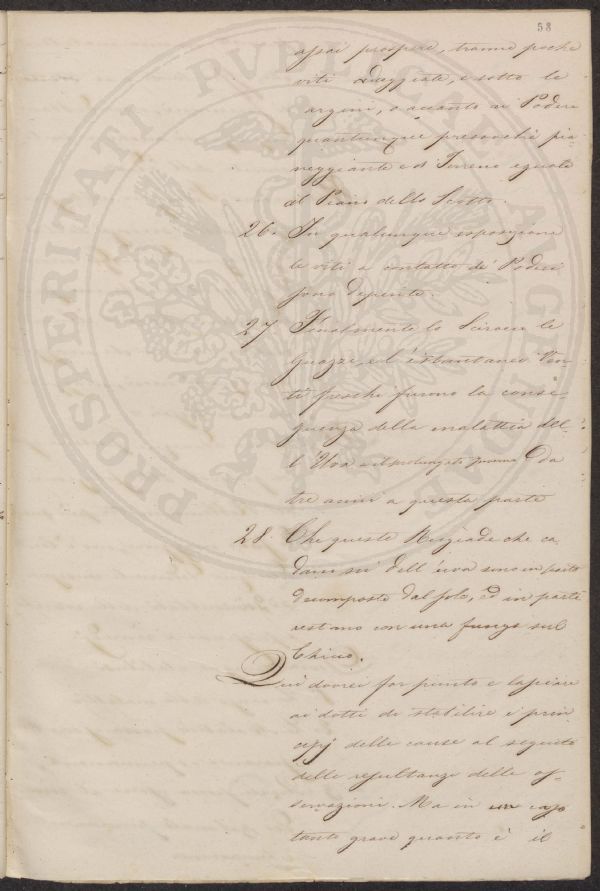 58
assai prospere, tranne poche
viti aduggiate, e sotto le
argini, o accanto ai Poderi
quantunque pressochè pia-
neggiante e di Terreno eguale
al Piano dello Scotto.
26. In qualunque esposizione
le viti a contatto de' Poderi
sono deperite.
27 Finalmente lo Scirocco le
Guazze, e l'istantanei Ven-
ti freschi furono la conse-
guenza della malattia del-
l'Uva e il prolungato da
tre anni a questa parte
28. Che queste Rugiade che ca-
dano su dell'uva sono in parte
decomposte dal sole, ed in parte
restano con una fungo sul
Chicco.
Qui dovrei far punto e lasciare
ai dotti di stabilire i prin-
cipj delle cause al seguito
delle resultanze delle os-
servazioni. Ma in un caso
tanto grave quanto è il
PROSPERITATI PUBLICAE AUGENDAE